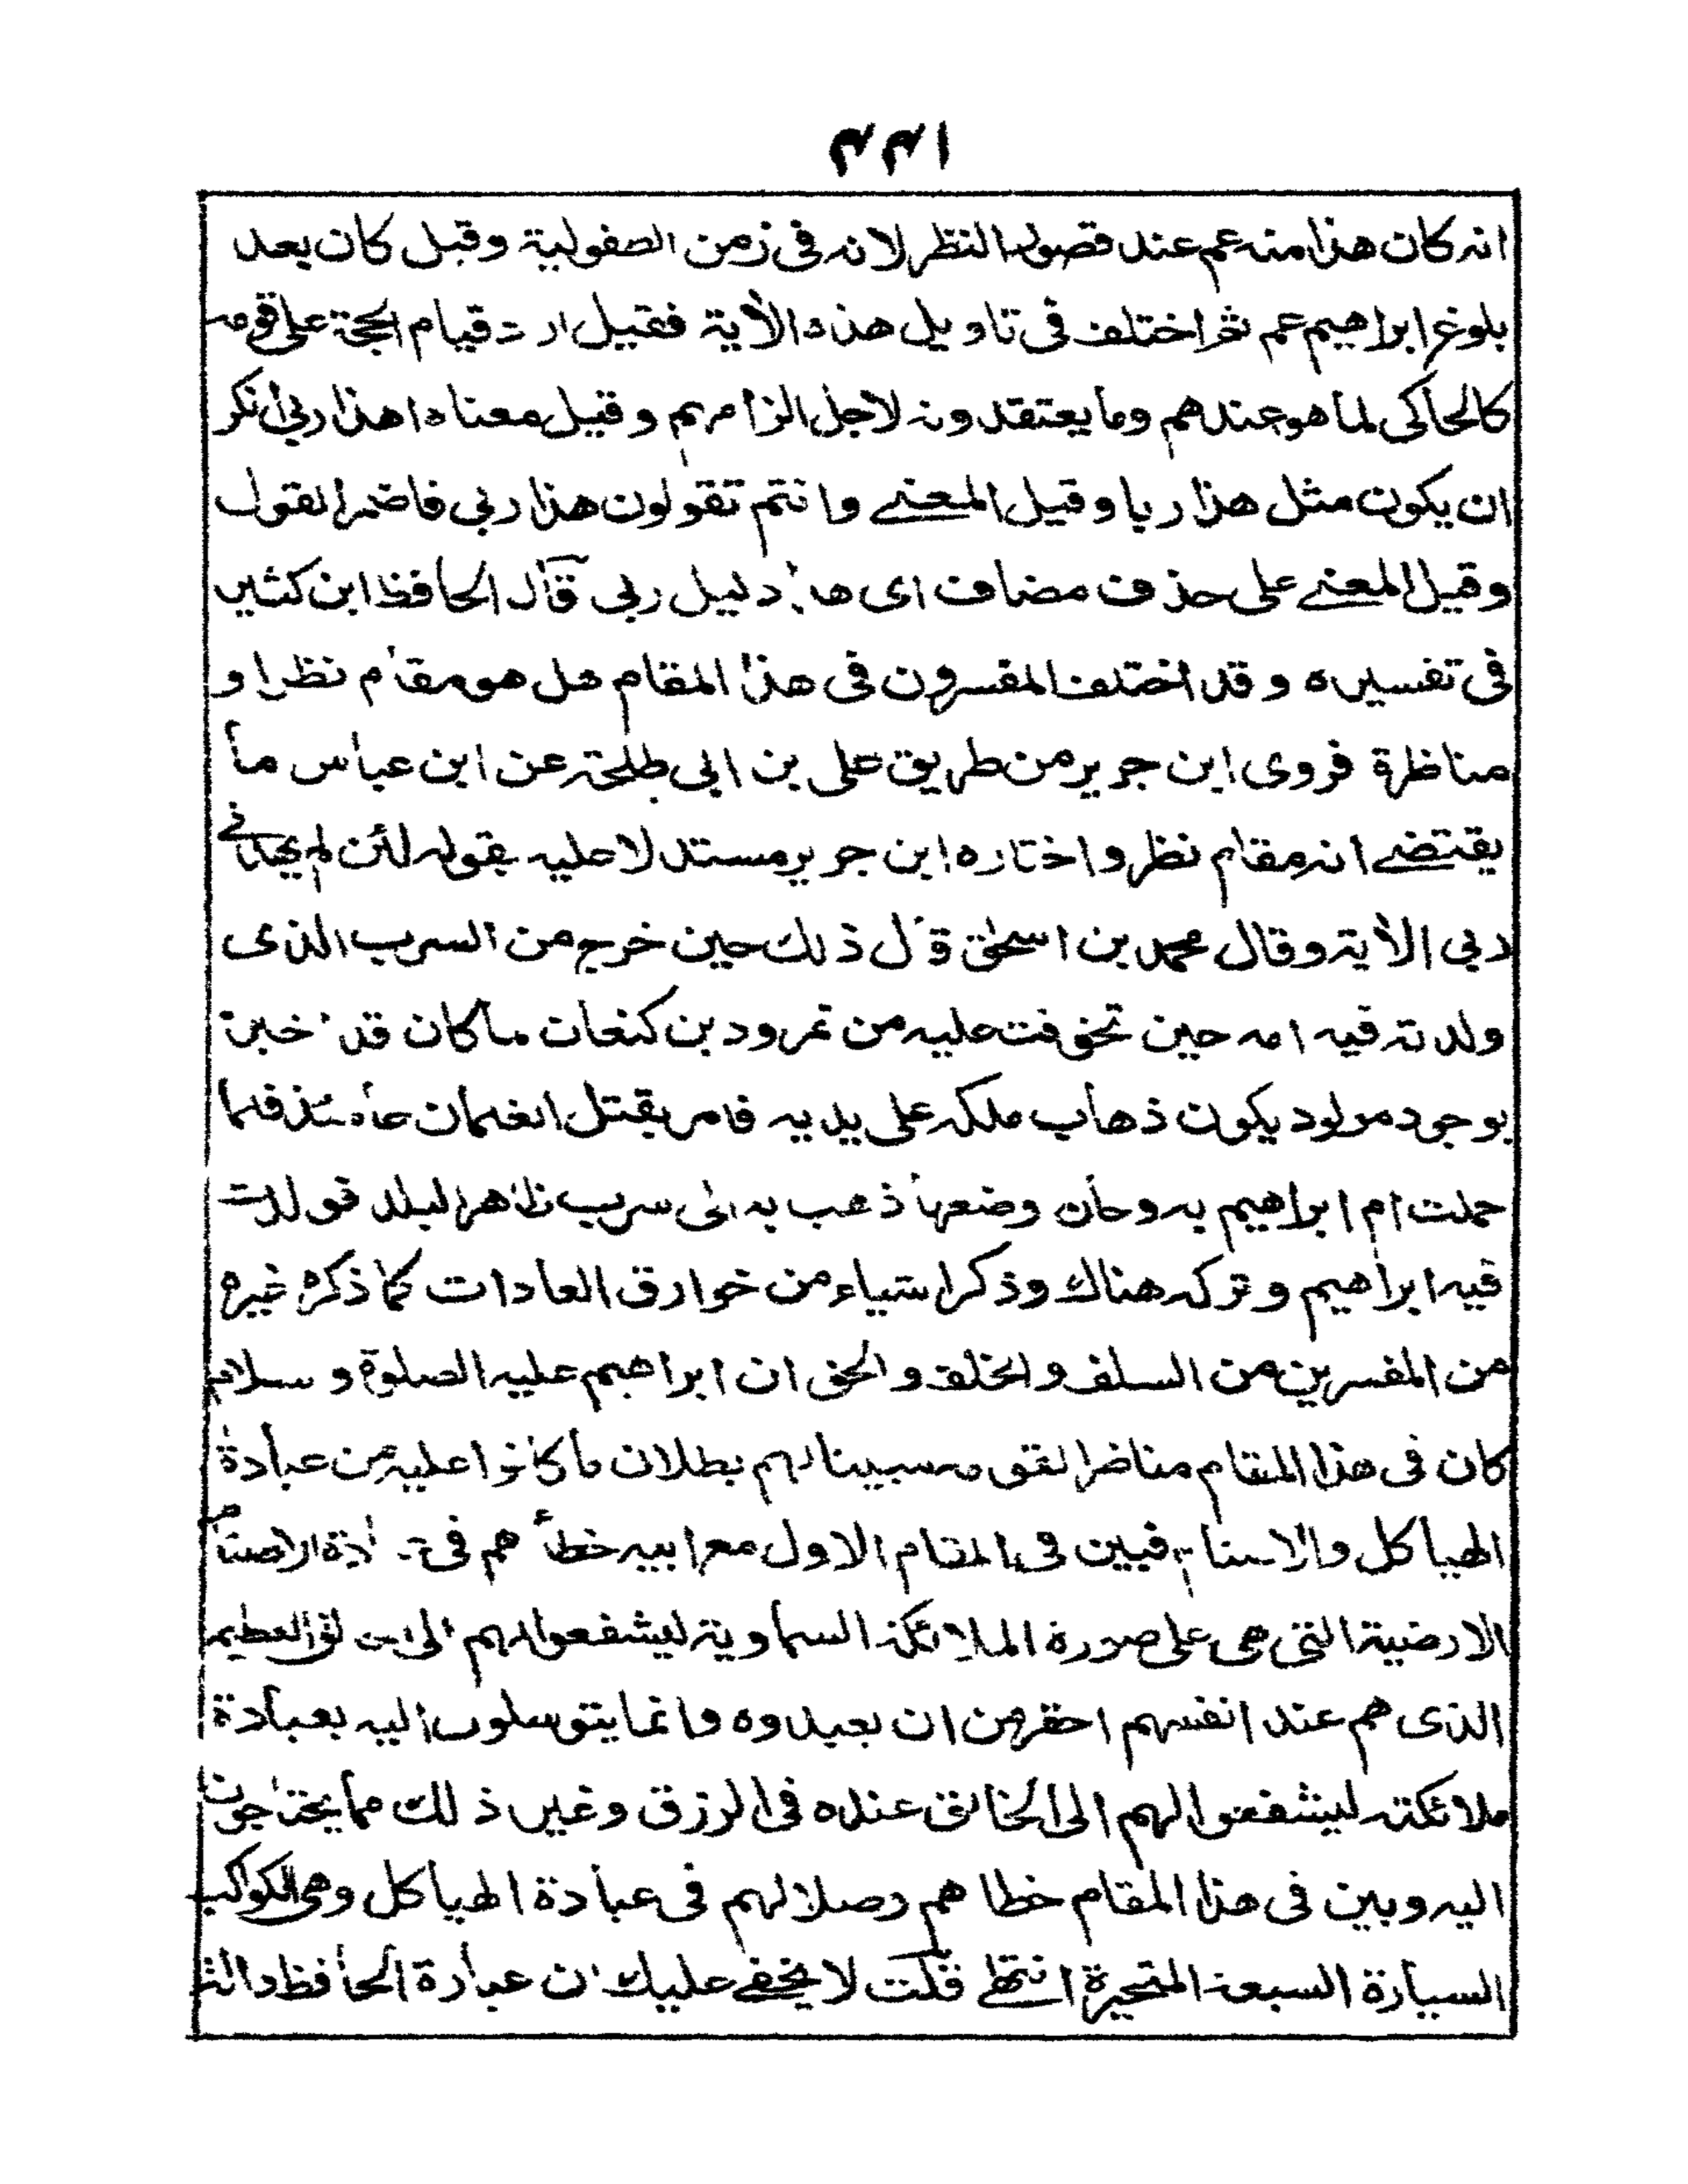 ١٤٤
انه كان هذا منه عم عند قصول النظر لانه فى زمن الصفولية وقبل كان بعد
بلوغ ابراهيم عم ثم اختلف فى تاويل هذه الأية فقيل قيام الحجة على قومه
كالحاكى لما هو عندهم وما يعتقدونه لاجل الزامهم وقيل معناه اهذا ربى أنكر
ان يكون مثل هذا ربا وقيل المعنے وانتم تقولون هذا ربى فاضمر القول
وقيل المعنے على حذف مضاف اى دليل ربى قال الحافظ ابن كثير
فى تفسيره وقد اختلف المفسرون فى هذا المقام هل هو مقام نظر او
مناظرة فروى ابن جرير من طريق على بن ابى طلحة عن ابن عباس ما
يقتضے انه مقام نظر واختاره ابن جرير مستدلا عليه بقوله لئن لم يهدنے
ربى الأية وقال محمد بن اسحٰق قال ذلك حين خرج من السرب الذى
ولدته فيه امه حين تخوفت عليه من نمرود بن كنعان ما كان قد اخبر
بوجود مولود يكون ذهاب ملكه على يديه فامر بقتل الغلمان عامئذ فلما
حملت ام ابراهيم به وحان وضعها ذهب به الى سرب ظاهر البلد فولدت
فيه ابراهيم وتركه هناك وذكر اشياء من خوارق العادات كما ذكره غيره
من المفسرين من السلف والخلف والحق ان ابراهيم عليه الصلوة وسلام
كان فى هذا المقام مناظرا لقومه مبينا لهم بطلان ما كانوا عليه من عبادة
الهياكل والاصنام فبين فى المقام الاول مع ابيه خطأهم فى الاصنام
الارضية التى هى على صورة الملائكة السماوية ليشفعوا لهم الى العظيم
الذى هم عند انفسهم احقر من ان يعبدوه وانما يتوسلون اليه بعبادة
ملائكته ليشفعوا لهم الى الخالق عنده فى الرزق وغير ذلك مما يحتاجون
اليه وبين فى هذا المقام خطاهم وصلالهم فى عبادة الهياكل وهى الكواكب
السيارة السبعة المتحيرة انتهٰے قلت لا يخفے عليك ان عبارة الحافظ